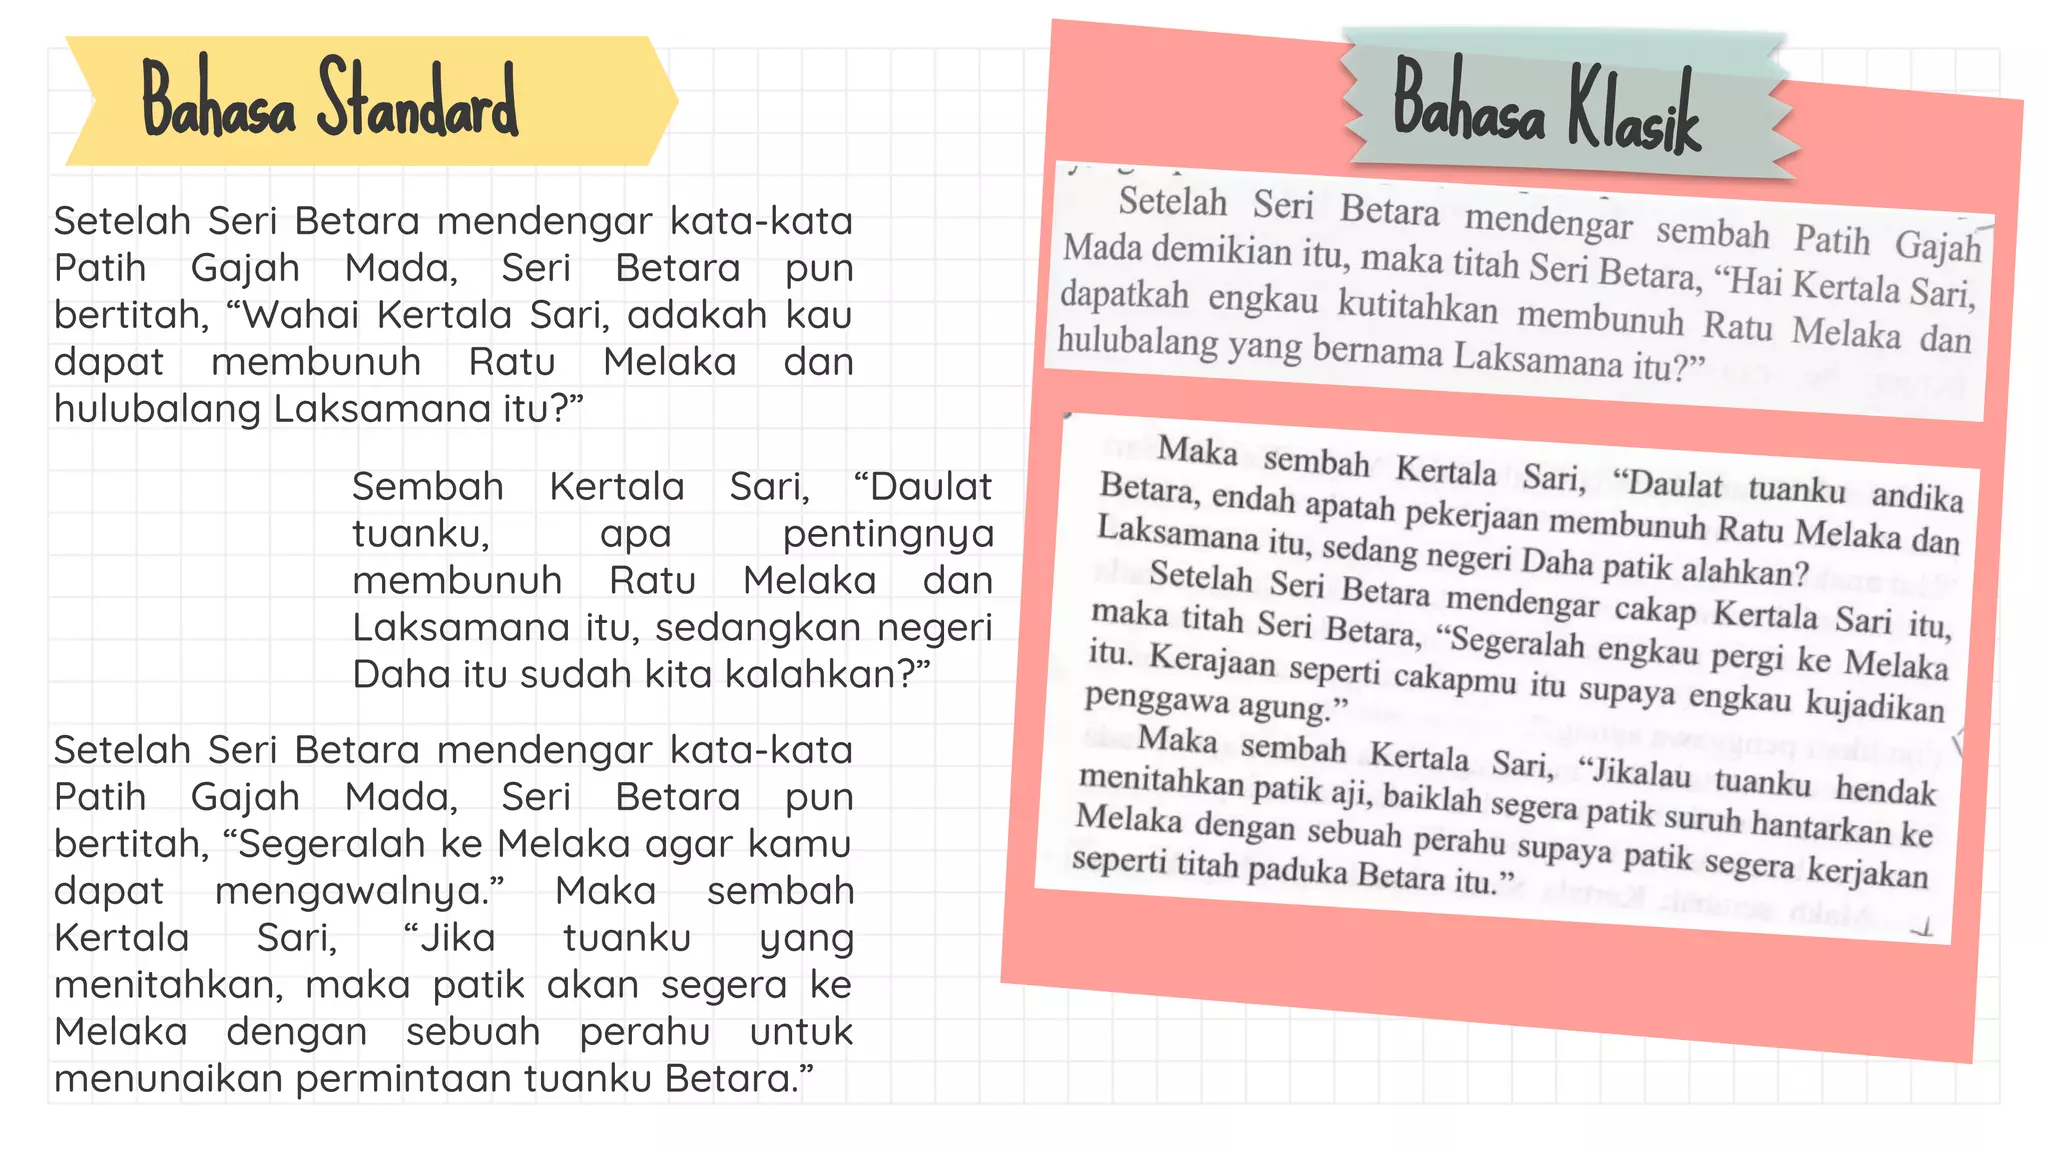 Bahasa Standard
Setelah Seri Betara mendengar kata-kata
Patih Gajah Mada, Seri Betara pun
bertitah, “Wahai Kertala Sari, adakah kau
dapat membunuh Ratu Melaka dan
hulubalang Laksamana itu?”
Sembah Kertala Sari, “Daulat
tuanku, apa pentingnya
membunuh Ratu Melaka dan
Laksamana itu, sedangkan negeri
Daha itu sudah kita kalahkan?”
Setelah Seri Betara mendengar kata-kata
Patih Gajah Mada, Seri Betara pun
bertitah, “Segeralah ke Melaka agar kamu
dapat mengawalnya.” Maka sembah
Kertala Sari, “Jika tuanku yang
menitahkan, maka patik akan segera ke
Melaka dengan sebuah perahu untuk
menunaikan permintaan tuanku Betara.”
Bahasa Klasik
Setelah Seri Betara mendengar sembah Patih Gajah
Mada demikian itu, maka titah Seri Betara, “Hai Kertala Sari,
dapatkah engkau kutitahkan membunuh Ratu Melaka dan
hulubalang yang bernama Laksamana itu?”
Maka sembah Kertala Sari, “Daulat tuanku andika
Betara, endah apatah pekerjaan membunuh Ratu Melaka dan
Laksamana itu, sedang negeri Daha patik alahkan?
Setelah Seri Betara mendengar cakap Kertala Sari itu,
maka titah Seri Betara, “Segeralah engkau pergi ke Melaka
itu. Kerajaan seperti cakapmu itu supaya engkau kujadikan
penggawa agung.”
Maka sembah Kertala Sari, “Jikalau tuanku hendak
menitahkan patik aji, baiklah segera patik suruh hantarkan ke
Melaka dengan sebuah perahu supaya patik segera kerjakan
seperti titah paduka Betara itu.”